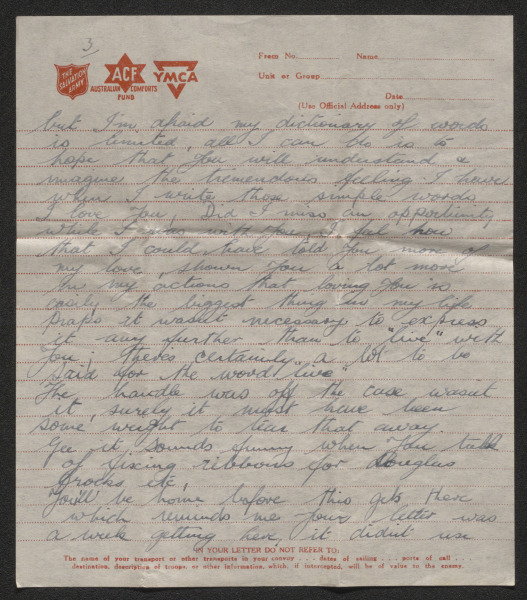 3
THE
SALVATION
ARMY
ACF
AUSTRALIAN COMFORTS
FUND
YMCA
From No. Name
Unit or Group
Date
(Use Official Address only)
but I'm afraid my dictionary of words
is limited, all I can do is to
hope that you will understand &
imagine the tremendous feeling I have
when I write those simple words
I love you, Did I miss an opportunity
while I was with you, I feel now
that I could have told you more of
my love, shown you a lot more
in my actions that loving you is
easily the biggest thing in my life
Praps it wasn't necessary to express
it any further than to "live" with
you; theres certainly a lot to be
said for the word "live"
The handle was off the case wasn't
it, surely it must have been
some weight to tear that away.
Gee it sounds funny when you talk
of fixing ribbons for Douglas
frocks etc,
You'll be home before this gets there
which reminds me your letter was
a week getting here, it didn't use
IN YOUR LETTER DO NOT REFER TO:
The name of your transport or other transports in your convoy . . . dates of sailing . . . ports of call . . .
destination, description of troops, or other information, which, if intercepted, will be of value to the enemy.